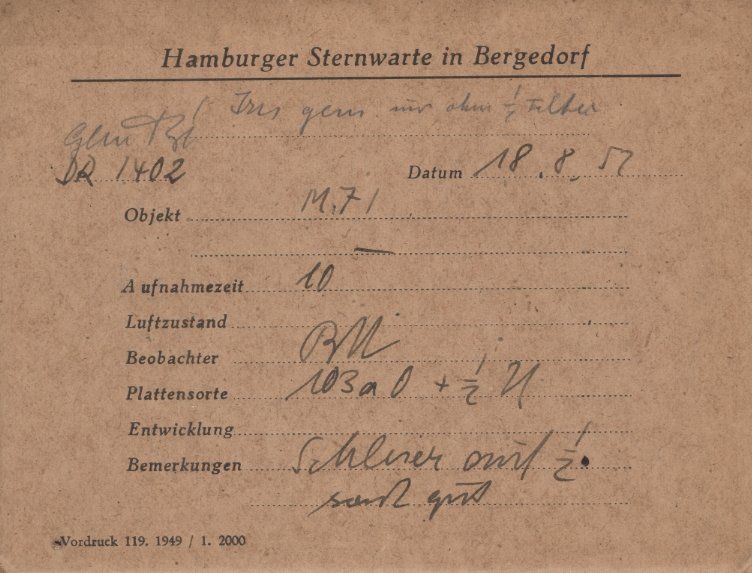 Hamburger Sternwarte in Bergedorf
Iris gem nur ohne ½ Filter
gem
DR 1402 Datum 18.8.57
Objekt M.71
—
Aufnahmezeit 10
Luftzustand
Beobachter
Plattensorte 103a0 + ½ U
Entwicklung
Bemerkungen Schleier auf ½.
sonst gut
Vordruck 119. 1949 / 1. 2000